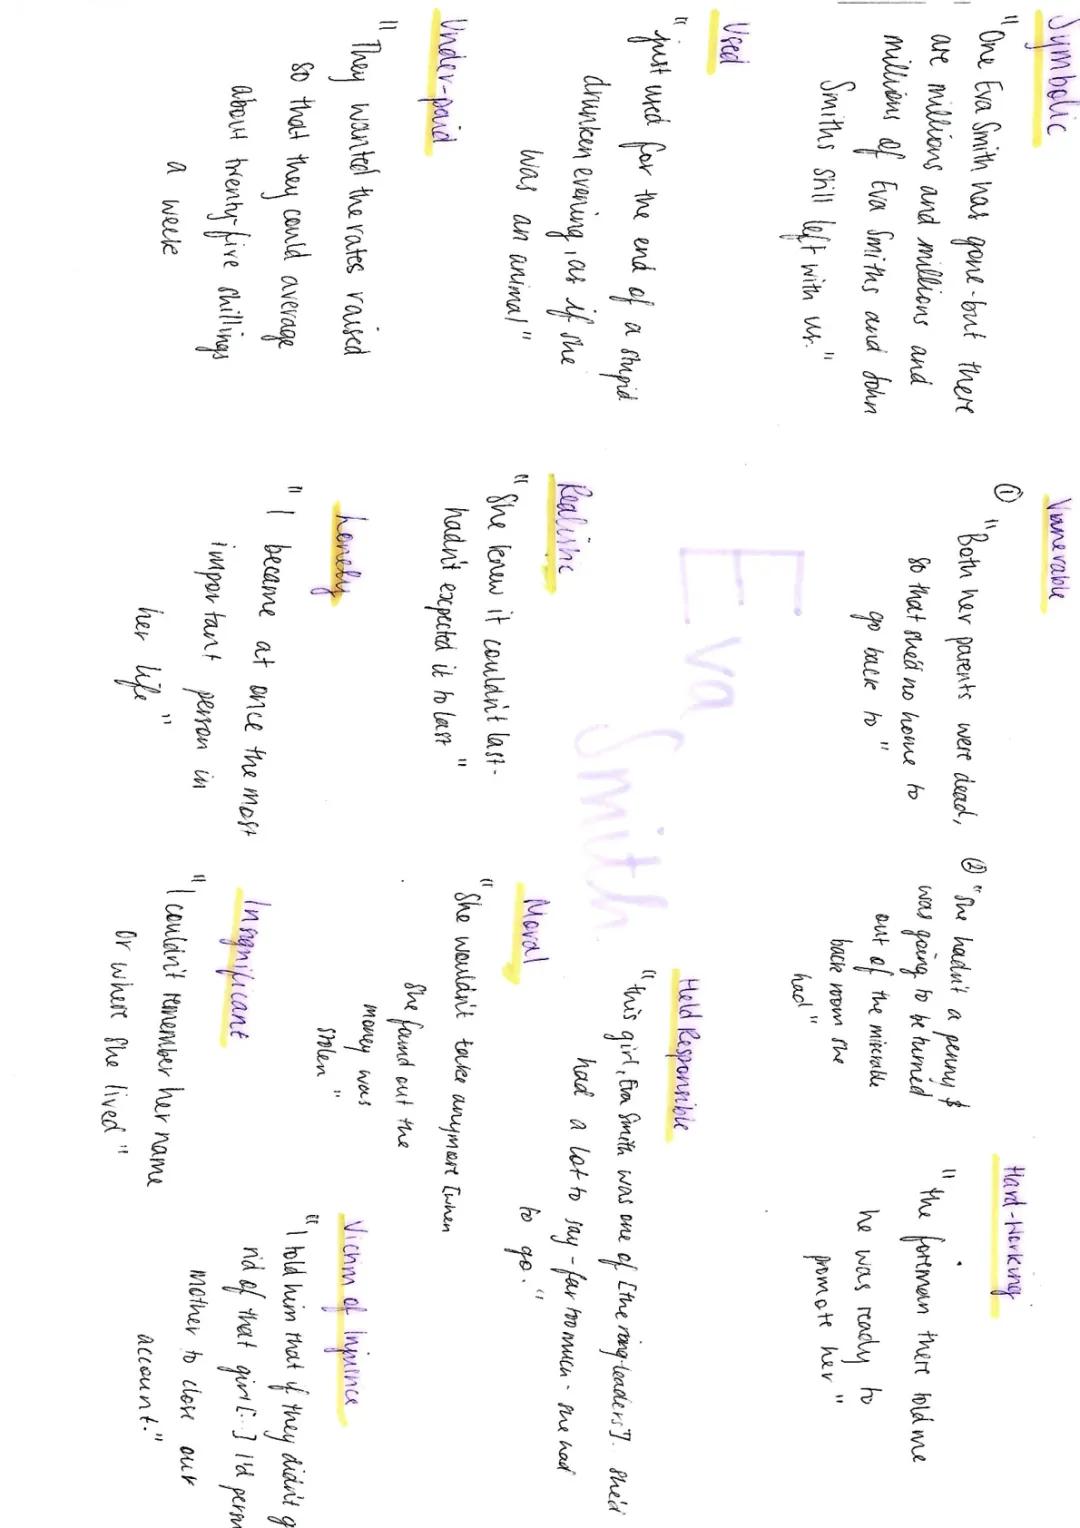 Symbolic
"One Eva Smith has gone-but there
are millions and millions and
millions of Eva Smiths and John
Smiths still left with us."
Used
"just used for the end of a stupid
drunken evening, as if she
was an animal"
Under-paid
"They wanted the rates raised
so that they could average
about twenty-five shillings
a week
Vunerable
① "Both her parents were dead,
so that she'd no home to
go back to"
② "She hadn't a penny &
was going to be turned
out of the miserable
back room she
had"
Hard-Working
"the foreman there told me
he was ready to
promote her"
Eva Smith
Held Responsible
"this girl, Eva Smith was one of [the ring-leaders]. She'd
had a lot to say - far too much - she had
to go."
Realistic
"She knew it couldn't last-
hadn't expected it to last"
Moral
"She wouldn't take anymore [when
she found out the
money was
stolen"
Lonely
"I became at once the most
important person in
her life"
Insignificant
"I couldn't remember her name
or where she lived"
Victim of Injusnce
"I told him that if they didn't g
rid of that girl [...] I'd persu
mother to close our
account."